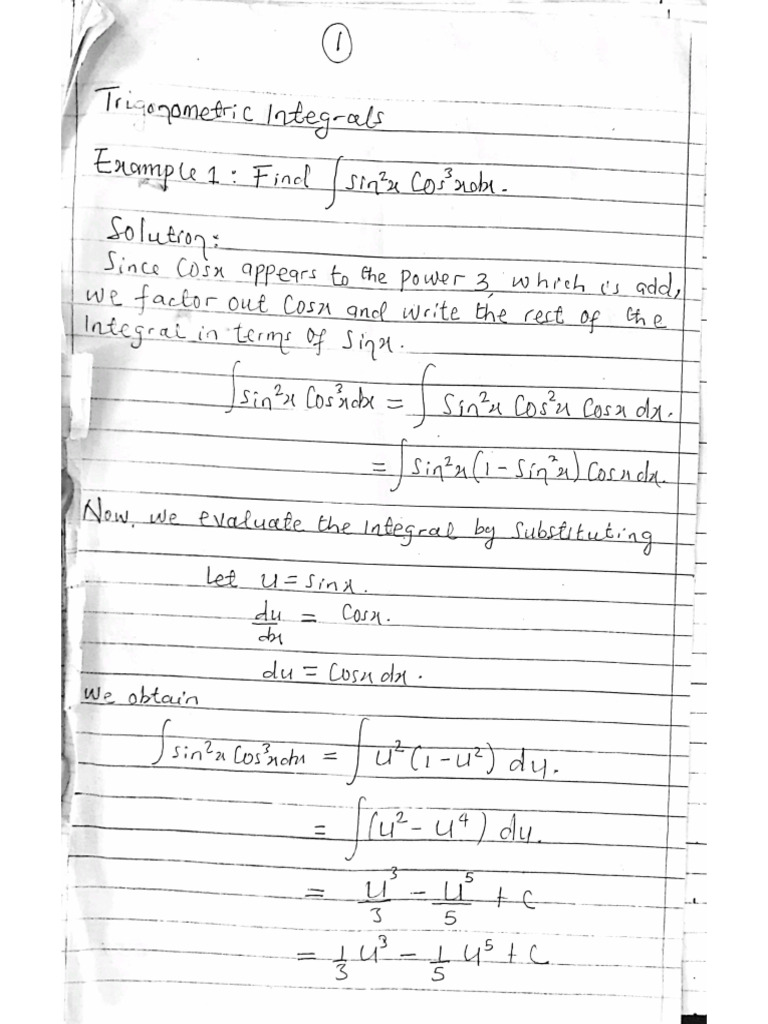 1
Trigonometric Integrals
Example 1: Find ∫ sin²x Cos³x dx.
Solution:
Since Cosx appears to the power 3, which is add,
we factor out Cosx and write the rest of the
Integral in terms of Sinx.
∫ sin²x Cos³x dx = ∫ Sin²x Cos²x Cosx dx.
= ∫ Sin²x (1 - Sin²x) Cosx dx.
Now, we evaluate the Integral by substituting
Let u = sinx.
du/dx = Cosx.
du = Cosx dx.
we obtain
∫ sin²x Cos³x dx = ∫ u² (1 - u²) du.
= ∫ (u² - u⁴) du.
= u³/3 - u⁵/5 + C
= 1/3 u³ - 1/5 u⁵ + C